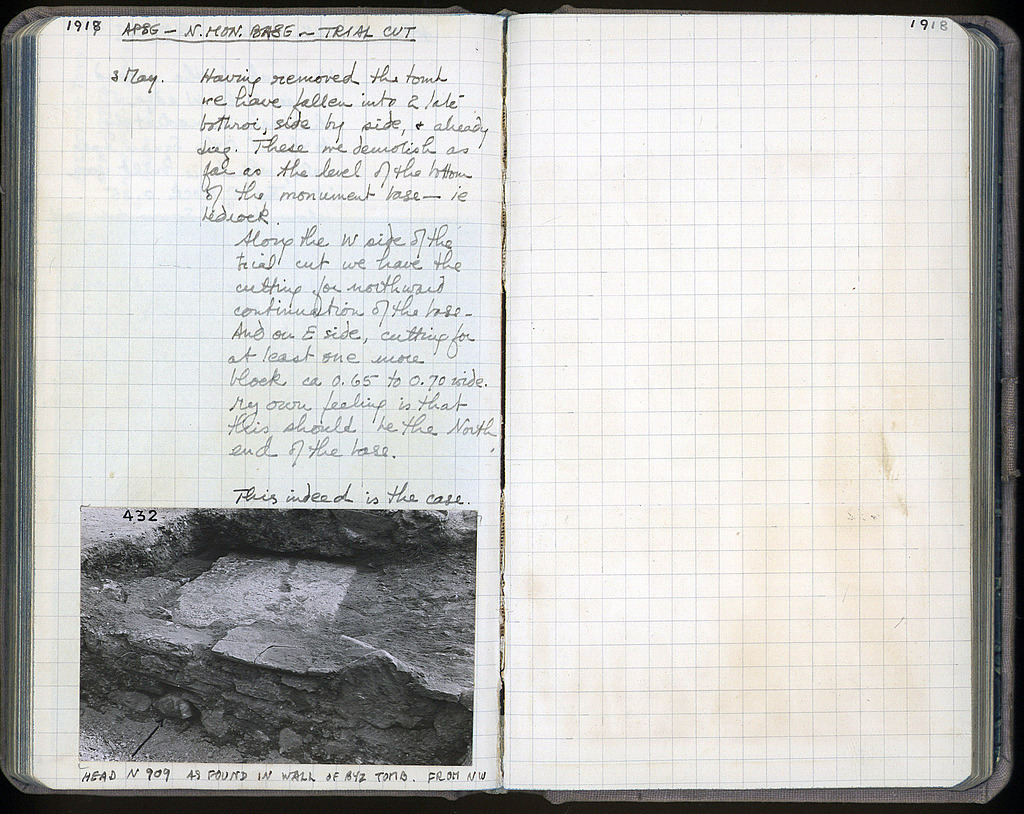 1918
APSE - N. MON. BASE - TRIAL CUT
3 May. Having removed the tomb
we have fallen into 2 late
bothroi, side by side, & already
dug. These we demolish as
far as the level of the bottom
of the monument base - ie
bedrock.
Along the W side of the
trial cut we have the
cutting for northward
continuation of the base -
And on E side, cutting for
at least one more
block ca 0.65 to 0.70 wide.
My own feeling is that
this should be the North
end of the base.
This indeed is the case.
432
HEAD N 909 AS FOUND IN WALL OF BYZ TOMB. FROM NW
1918